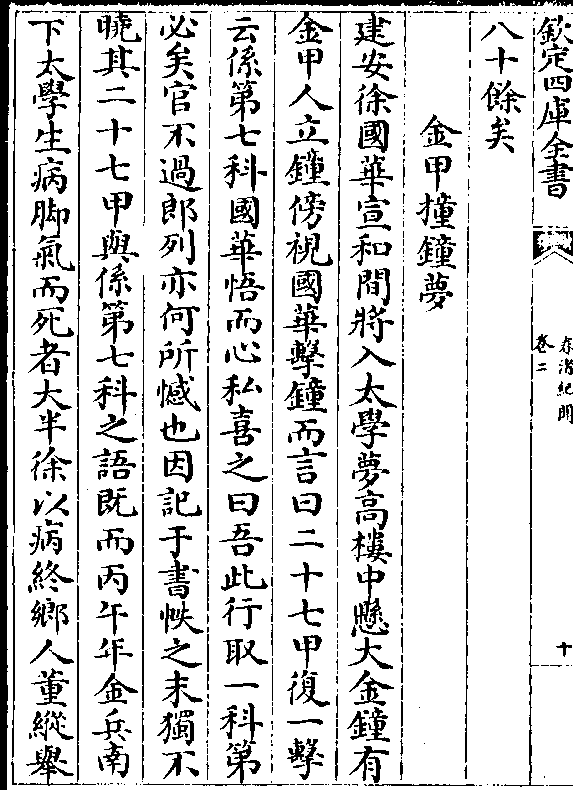 欽定四庫全書
春渚紀聞
卷二
十
八十餘矣
金甲撞鐘夢
建安徐國華宣和間將入太學夢高樓中懸大金鐘有
金甲人立鐘傍視國華擊鐘而言曰二十七甲復一擊
云係第七科國華悟而心私喜之曰吾此行取一科第
必矣官不過郎列亦何所憾也因記于書帙之末獨不
曉其二十七甲與係第七科之語既而丙午年金兵南
下太學生病脚氣而死者大半徐以病終鄉人董縱舉